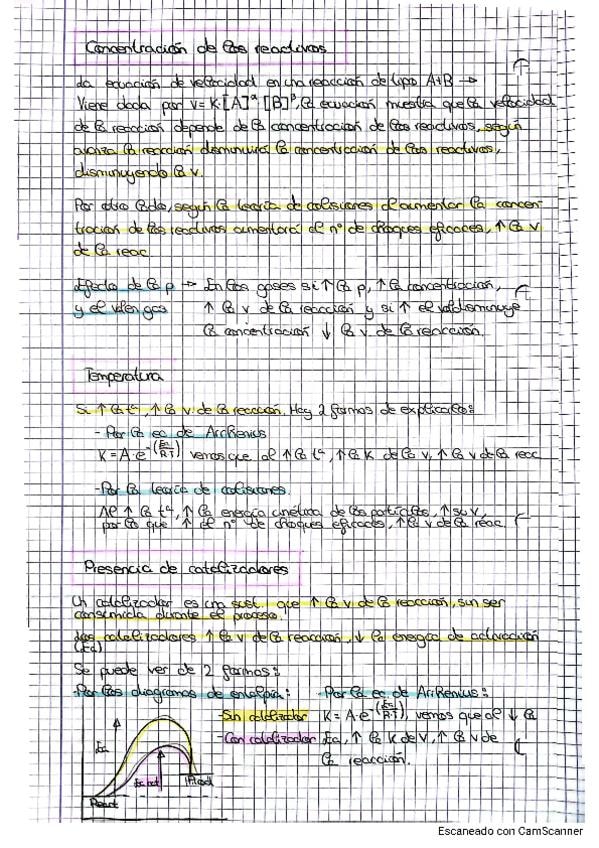 Concentración de los reactivos
La ecuación de velocidad en una reacción de tipo A+B →
Viene dada por v = K·[A]ᵅ [B]ᵝ, la ecuación muestra que la velocidad
de la reacción depende de la concentración de los reactivos, según
avanza la reacción disminuirá la concentración de los reactivos,
disminuyendo la v.
Por otro lado, según la teoría de colisiones al aumentar la concen-
tración de los reactivos aumentará el nº de choques eficaces, ↑ la v
de la reac
Efecto de la p → En los gases si ↑ la p, ↑ la concentración,
y el vol en gas ↑ la v de la reacción y si ↑ el vol disminuye
la concentración ↓ la v de la reacción.
Temperatura
Si ↑ la tª, ↑ la v. de la reacción. Hay 2 formas de explicarlo:
- Por la ec. de Arrhenius
K = A·e^-(Ea/R·T) vemos que al ↑ la tª, ↑ la K de la v, ↑ la v de la reac
- Por la teoría de colisiones.
Al ↑ la tª, ↑ la energía cinética de las partículas, ↑ su v,
por lo que ↑ el nº de choques eficaces, ↑ la v de la reac.
Presencia de catalizadores
Un catalizador es una sust. que ↑ la v de la reacción, sin ser
consumida durante el proceso.
Los catalizadores ↑ la v de la reacción, ↓ la energía de activación
(Ea)
Se puede ver de 2 formas:
- Por los diagramas de entalpía: - Por la ec. de Arrhenius:
- Sin catalizador K = A·e^-(Ea/R·T), vemos que al ↓ la
- Con catalizador Ea, ↑ la K de v, ↑ la v de
la reacción.
Ea
Ea cat
Prod
React
Escaneado con CamScanner